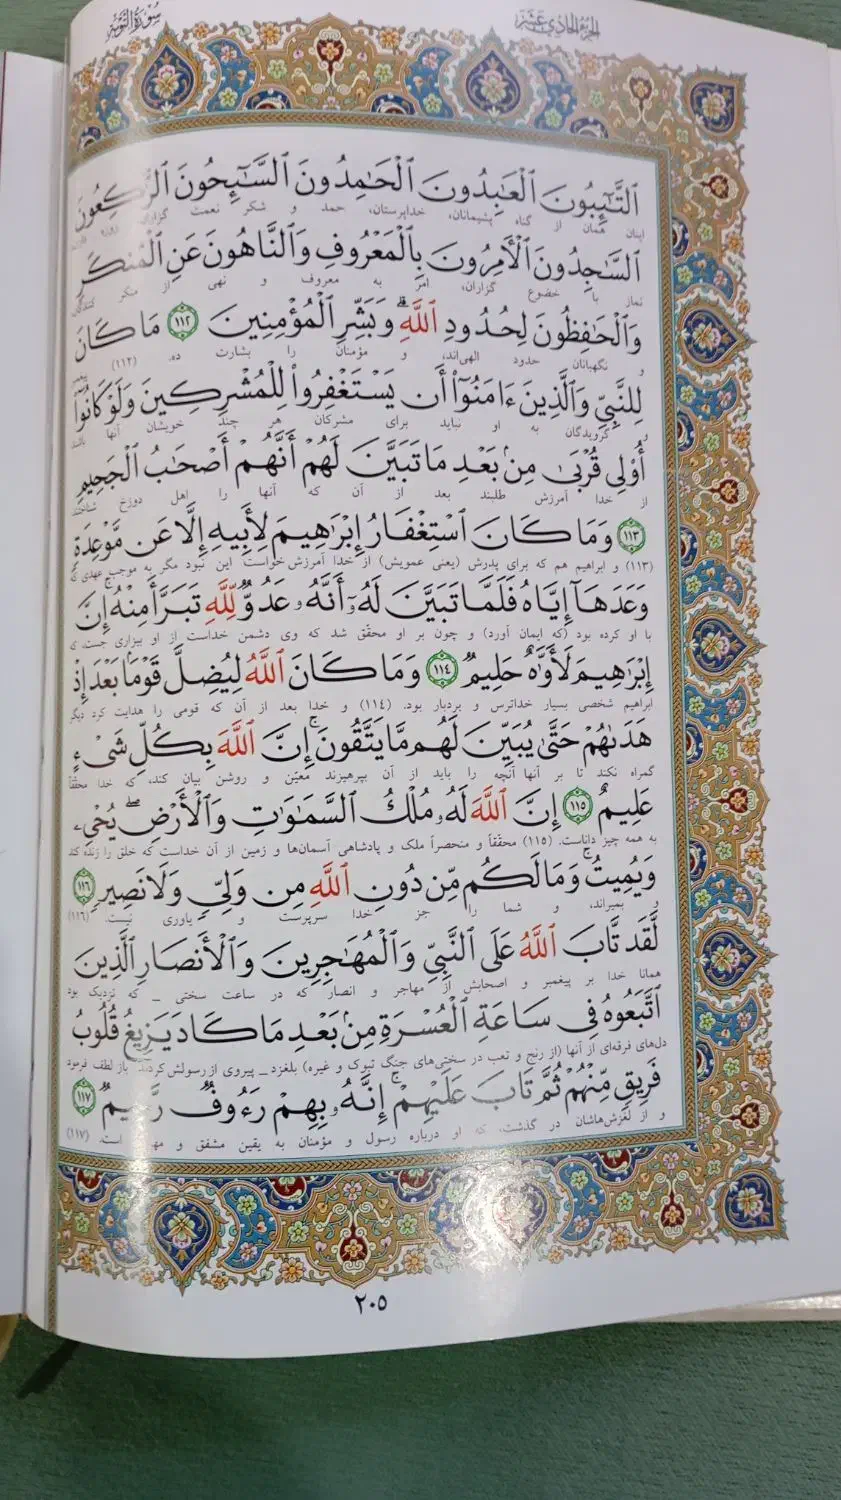 سُورَةُ التَّوْبَة
الجزء الحادي عشر
ٱلتَّـٰٓئِبُونَ ٱلْعَـٰبِدُونَ ٱلْحَـٰمِدُونَ ٱلسَّـٰٓئِحُونَ ٱلرَّٰكِعُونَ
اینان همان از گناه پشیمانان، خداپرستان، حمد و شکر نعمت گزاران
ٱلسَّـٰجِدُونَ ٱلْـَٔامِرُونَ بِٱلْمَعْرُوفِ وَٱلنَّاهُونَ عَنِ ٱلْمُنكَرِ
نماز با خضوع گزاران، امر به معروف و نهی از منکر کنندگان
وَٱلْحَـٰفِظُونَ لِحُدُودِ ٱللَّهِ ۗ وَبَشِّرِ ٱلْمُؤْمِنِينَ ١١٢ مَا كَانَ
و نگهبانان حدود الهی‌اند، و مؤمنان را بشارت ده. (۱۱۲) پیغمبر
لِلنَّبِىِّ وَٱلَّذِينَ ءَامَنُوٓا۟ أَن يَسْتَغْفِرُوا۟ لِلْمُشْرِكِينَ وَلَوْ كَانُوٓا۟
و گرویدگان به او نباید برای مشرکان هر چند خویشان آنها باشند
أُو۟لِى قُرْبَىٰ مِنۢ بَعْدِ مَا تَبَيَّنَ لَهُمْ أَنَّهُمْ أَصْحَـٰبُ ٱلْجَحِيمِ
از خدا آمرزش طلبند بعد از آن که آنها را اهل دوزخ شناختند
١١٣ وَمَا كَانَ ٱسْتِغْفَارُ إِبْرَٰهِيمَ لِأَبِيهِ إِلَّا عَن مَّوْعِدَةٍ
(۱۱۳) و ابراهیم هم که برای پدرش (یعنی عمویش) از خدا آمرزش خواست این نبود مگر به موجب عهدی که
وَعَدَهَآ إِيَّاهُ فَلَمَّا تَبَيَّنَ لَهُۥٓ أَنَّهُۥ عَدُوٌّ لِّلَّهِ تَبَرَّأَ مِنْهُ إِنَّ
با او کرده بود (که ایمان آورد) و چون بر او محقّق شد که وی دشمن خداست از او بیزاری جست، که
إِبْرَٰهِيمَ لَأَوَّٰهٌ حَلِيمٌ ١١٤ وَمَا كَانَ ٱللَّهُ لِيُضِلَّ قَوْمًۢا بَعْدَ إِذْ
ابراهیم شخصی بسیار خداترس و بردبار بود. (۱۱۴) و خدا بعد از آن که قومی را هدایت کرد دیگر
هَدَىٰهُمْ حَتَّىٰ يُبَيِّنَ لَهُم مَّا يَتَّقُونَ ۚ إِنَّ ٱللَّهَ بِكُلِّ شَىْءٍ
گمراه نکند تا بر آنها آنچه را باید از آن بپرهیزند معیّن و روشن بیان کند، که خدا محققاً
عَلِيمٌ ١١٥ إِنَّ ٱللَّهَ لَهُۥ مُلْكُ ٱلسَّمَـٰوَٰتِ وَٱلْأَرْضِ ۖ يُحْىِۦ
به همه چیز داناست. (۱۱۵) محققاً و منحصراً ملک و پادشاهی آسمان‌ها و زمین از آن خداست که خلق را زنده کند
وَيُمِيتُ ۚ وَمَا لَكُم مِّن دُونِ ٱللَّهِ مِن وَلِىٍّ وَلَا نَصِيرٍ ١١٦
و بمیراند، و شما را جز خدا سرپرست و یاوری نیست. (۱۱۶)
لَّقَد تَّابَ ٱللَّهُ عَلَى ٱلنَّبِىِّ وَٱلْمُهَـٰجِرِينَ وَٱلْأَنصَارِ ٱلَّذِينَ
همانا خدا بر پیغمبر و اصحابش از مهاجر و انصار که در ساعت سختی ـ که نزدیک بود
ٱتَّبَعُوهُ فِى سَاعَةِ ٱلْعُسْرَةِ مِنۢ بَعْدِ مَا كَادَ يَزِيغُ قُلُوبُ
دل‌های فرقه‌ای از آنها (از رنج و تعب در سختی‌های جنگ تبوک و غیره) بلغزد ـ پیروی از رسولش کردند، باز لطف فرمود
فَرِيقٍ مِّنْهُمْ ثُمَّ تَابَ عَلَيْهِمْ ۚ إِنَّهُۥ بِهِمْ رَءُوفٌ رَّحِيمٌ ١١٧
و از لغزش‌هاشان در گذشت، که او درباره رسول و مؤمنان به یقین مشفق و است. (۱۱۷)
٢٠٥